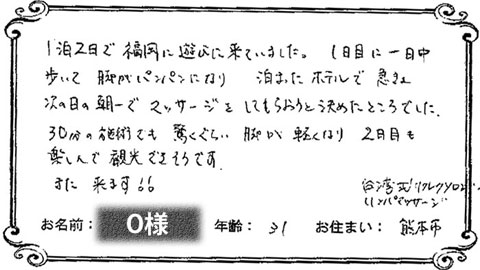 1泊2日で福岡に遊びに来ていました。1日目に一日中
歩いて 脚がパンパンになり 泊まったホテルで 急きょ
次の日の朝一でマッサージをしてもらおうと決めたところでした。
30分の施術でも 驚くぐらい 脚が 軽くなり 2日目も
楽しんで 観光できそうです。
また 来ます!!
台湾式リフレクソロジー
リンパマッサージ
お名前: O様 年齢: 31 お住まい: 熊本市